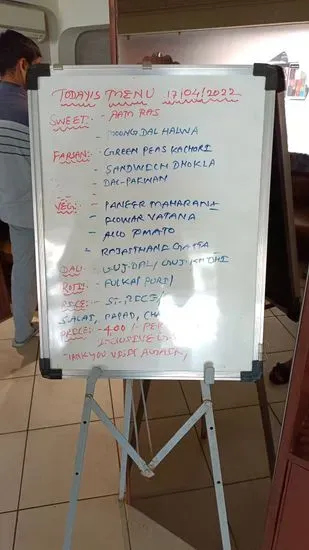 TODAY'S MENU 17/04/2022
SWEET:- - AAM RAS
- MOONG DAL HALWA
FARSAN:- - GREEN PEAS KACHORI
- SANDWICH DHOKLA
- DAL-PAKWAN
VEG:- - PANEER MAHARANI
- FLOWAR VATANA
- ALOO TOMATO
- RAJASTHANI GATTA
DAL:- - GUJ. DAL / GUJ. KADHI
ROTI:- - FULKA / PURI /
RICE:- - ST. RICE /
SALAD, PAPAD,
PRICE:- - 400/- PER
THANKYOU VISIT AGAIN /